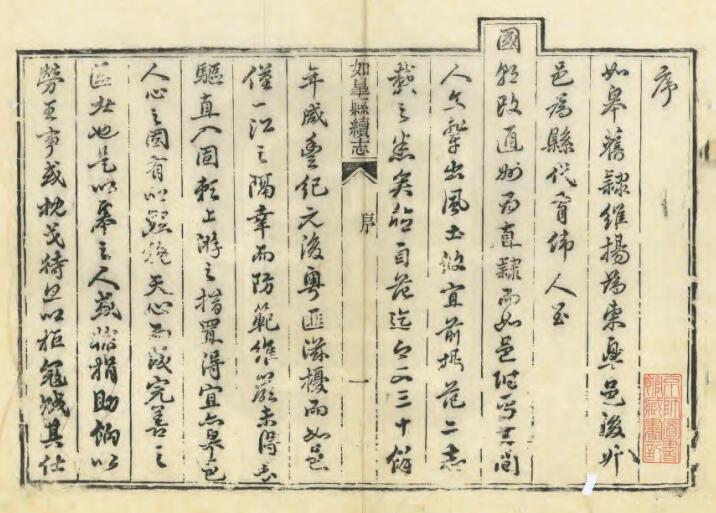 序
如皋舊隸維揚為東邑後
邑為縣代有偉人至
國朝改通州為直隸而如邑附焉其間
人文蔚出風土攸宜前楊范二志
載之悉矣自范迄今又三十餘
如皋縣續志
序
一
年咸豐紀元後粵匪滋擾而如邑
僅一江之隔幸而防範維嚴未得長
驅直入固賴上游之措置得宜亦皋邑
人心之固有以默挽天心而成完善之
區者也是以皋之人或輸捐助餉以
勞王事或枕戈待旦以拒寇賊其仕
京師圖書
館藏書記